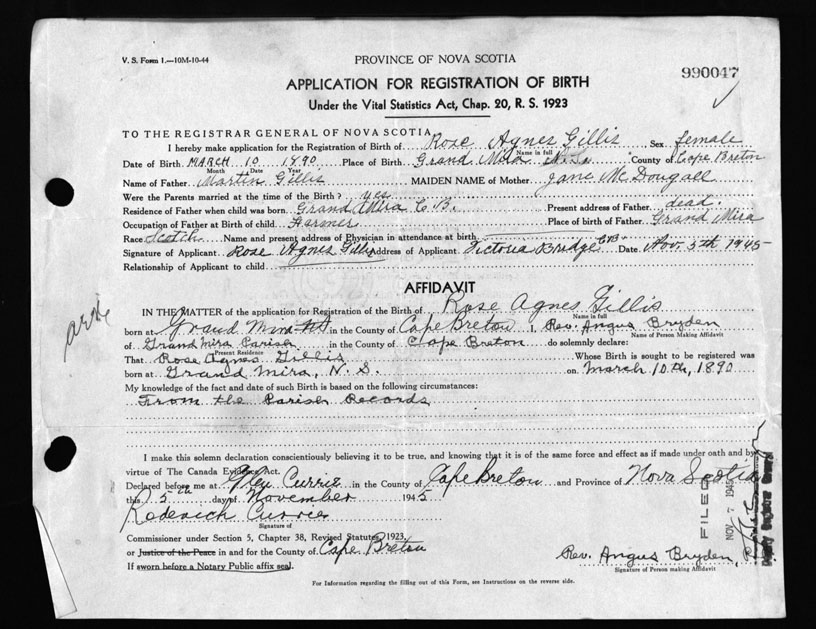 V. S. Form 1.—10M-10-44
PROVINCE OF NOVA SCOTIA
990047
APPLICATION FOR REGISTRATION OF BIRTH
Under the Vital Statistics Act, Chap. 20, R. S. 1923
TO THE REGISTRAR GENERAL OF NOVA SCOTIA
I hereby make application for the Registration of Birth of Rose Agnes Gillis Sex female
Name in full
Date of Birth MARCH 10 1890 Place of Birth Grand Mira N.S. County of Cape Breton
Month Date Year
Name of Father Martin Gillis MAIDEN NAME of Mother Jane McDougall
Were the Parents married at the time of the Birth? yes
Residence of Father when child was born Grand Mira C.B. Present address of Father dead.
Occupation of Father at Birth of child Farmer Place of birth of Father Grand Mira
Race Scotch Name and present address of Physician in attendance at birth
Signature of Applicant Rose Agnes Gillis Address of Applicant Victoria Bridge C.B. Date Nov. 5th 1945
Relationship of Applicant to child
AFFIDAVIT
IN THE MATTER of the application for Registration of the Birth of Rose Agnes Gillis
Name in full
born at Grand Mira in the County of Cape Breton I, Rev. Angus Bryden
Name of Person Making Affidavit
of Grand Mira Parish in the County of Cape Breton do solemnly declare:
Present Residence
That Rose Agnes Gillis Whose Birth is sought to be registered was
born at Grand Mira, N. S. on March 10th, 1890
My knowledge of the fact and date of such Birth is based on the following circumstances:
From the Parish Records
I make this solemn declaration conscientiously believing it to be true, and knowing that it is of the same force and effect as if made under oath and by
virtue of The Canada Evidence Act.
Declared before me at Glen Currie in the County of Cape Breton and Province of Nova Scotia
this 5th day of November 1945
Roderick Currie
Signature of
Commissioner under Section 5, Chapter 38, Revised Statutes, 1923,
or Justice of the Peace in and for the County of Cape Breton
If sworn before a Notary Public affix seal.
Rev. Angus Bryden,
Signature of Person making Affidavit
FILED
NOV. 7 1945
Deputy Registrar General
For Information regarding the filling out of this Form, see Instructions on the reverse side.